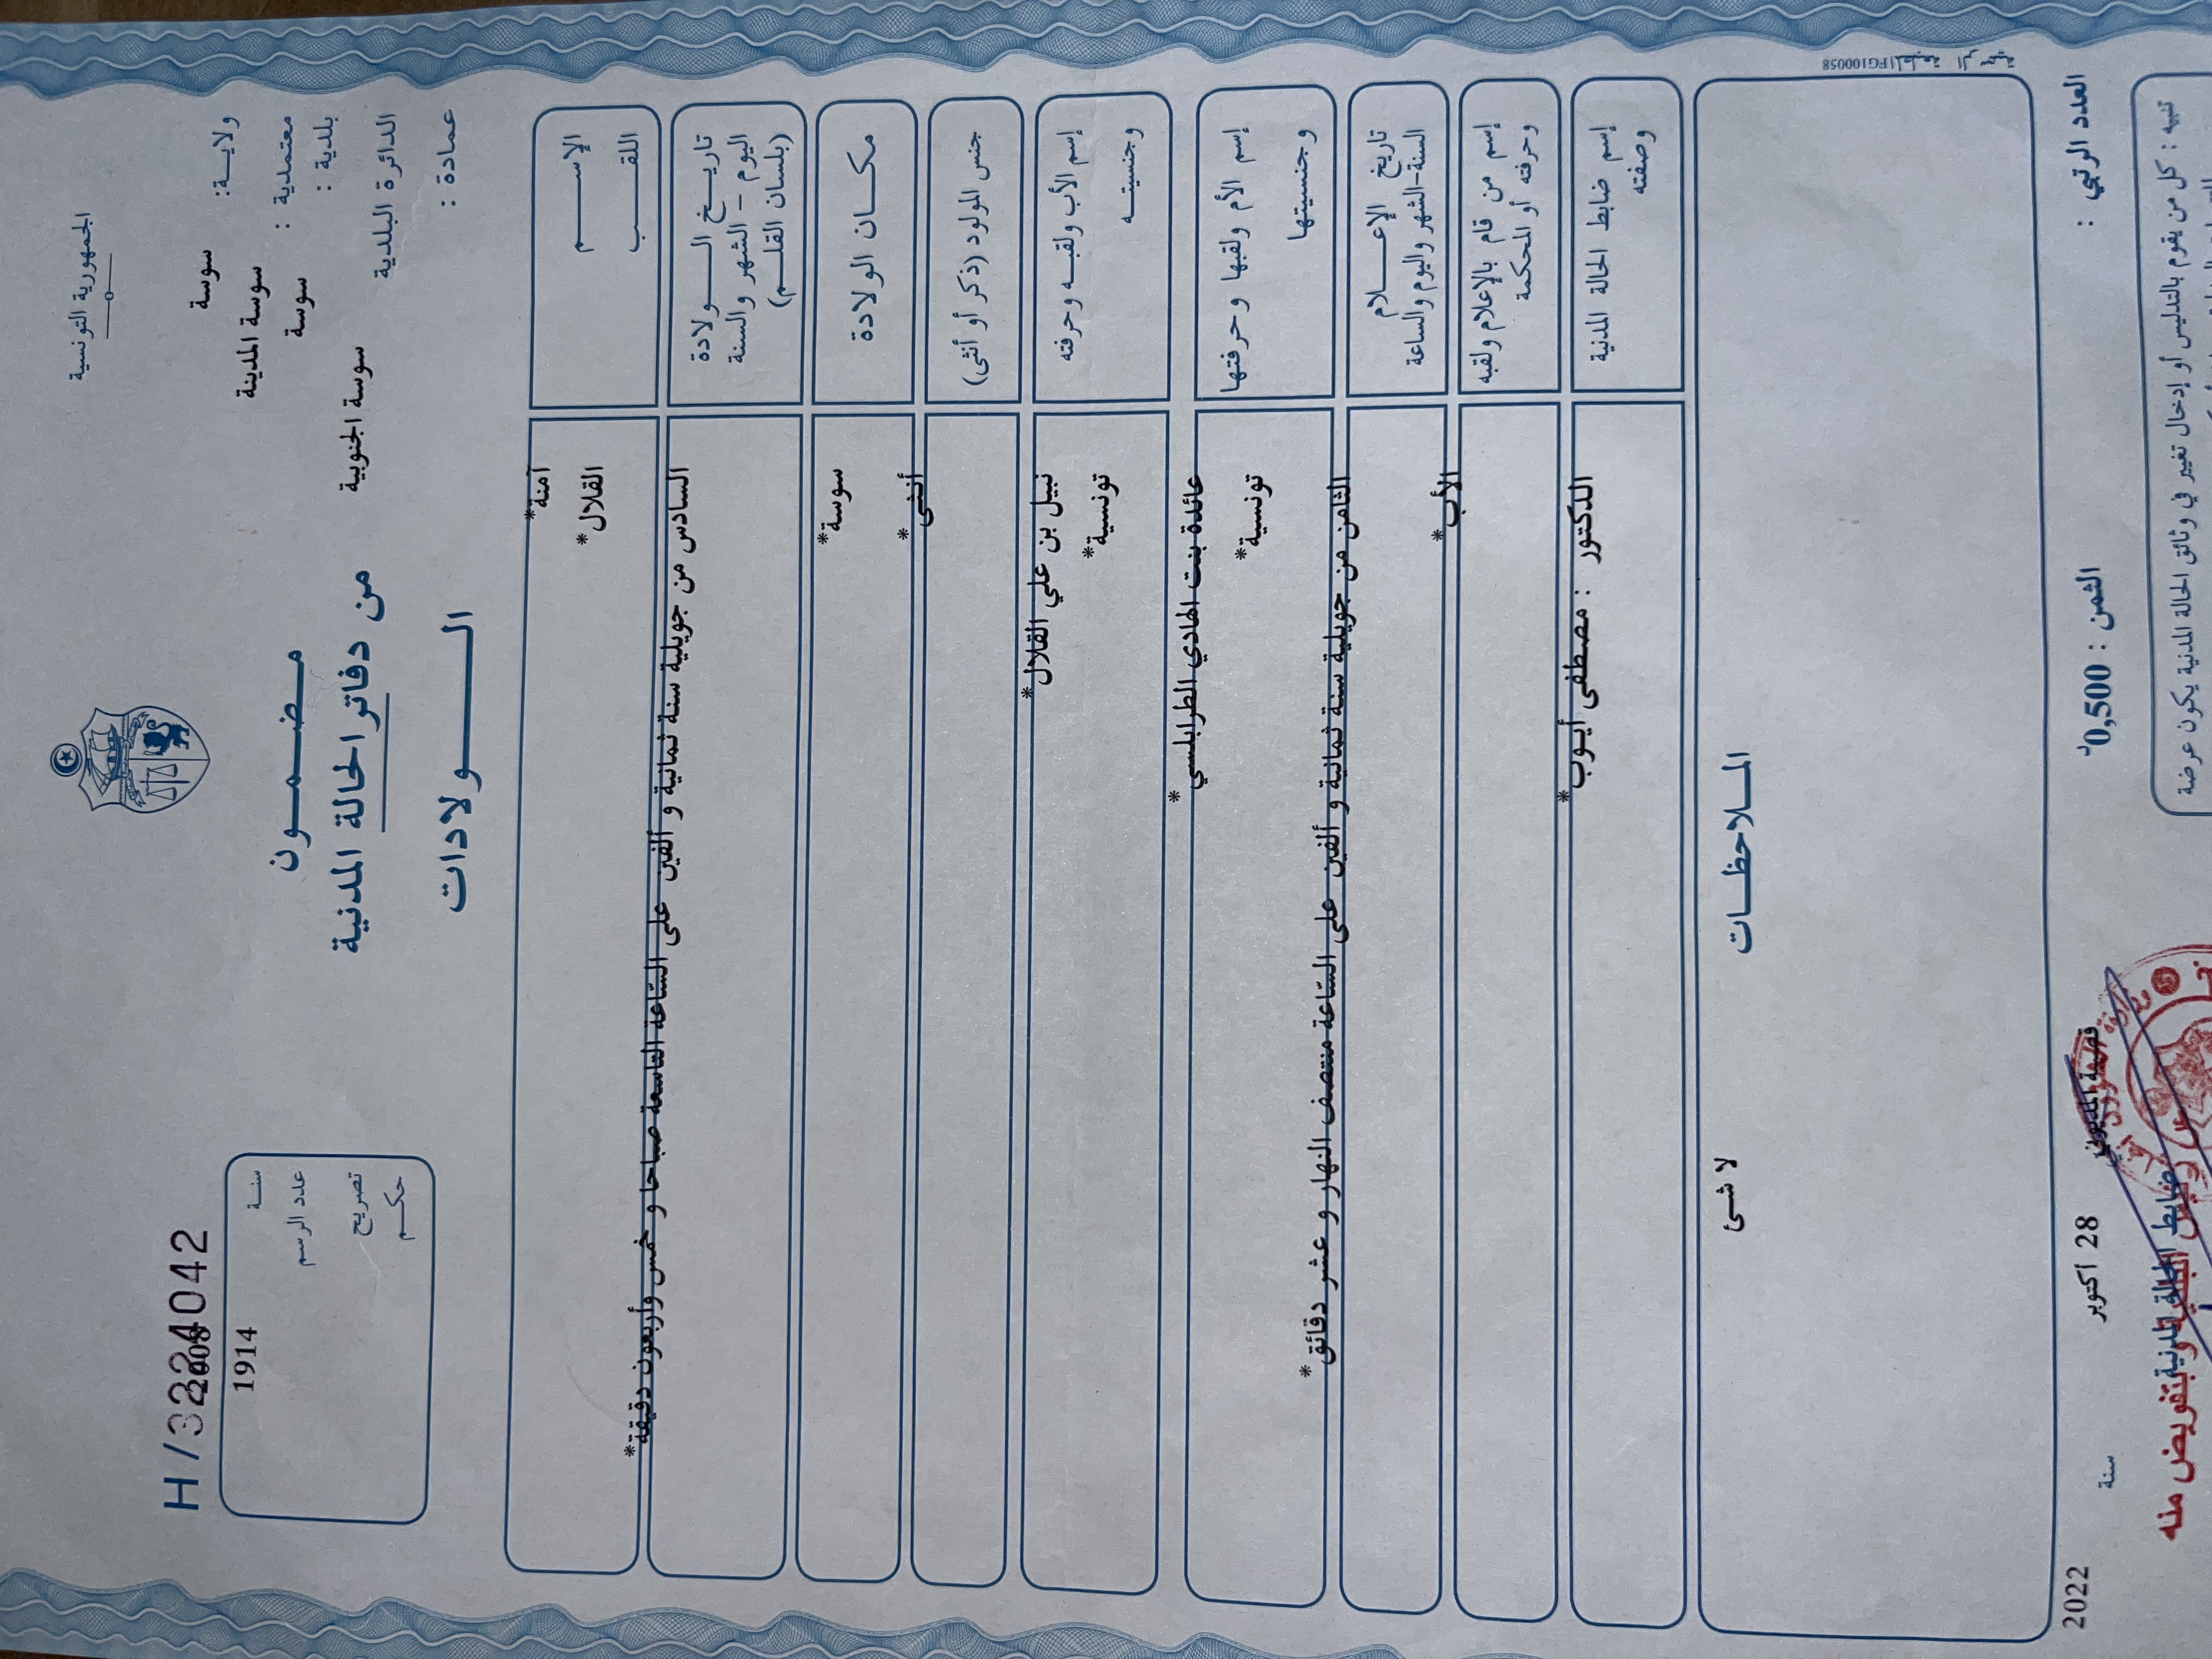 الجمهورية التونسية
H/3224042
2008
ولاية: سوسة
معتمدية : سوسة المدينة
بلدية : سوسة
الدائرة البلدية سوسة الجنوبية
عمادة :
مضمون
من دفاتر الحالة المدنية
الولادات
سنة
1914
عدد الرسم
تصريح
حكم
الإسم آمنة*
اللقب القلال*
تاريخ الولادة
اليوم - الشهر والسنة
(بلسان القلم)
السادس من جويلية سنة ثمانية و ألفين على السّاعة التاسعة صباحا و خمس وأربعون دقيقة*
مكان الولادة سوسة*
جنس المولود (ذكر أو أنثى) أنثى*
إسم الأب ولقبه وحرفته نبيل بن علي القلال*
وجنسيته تونسية*
إسم الأم ولقبها وحرفتها عائدة بنت الهادي الطرابلسي*
وجنسيتها تونسية*
تاريخ الإعلام
السنة-الشهر واليوم والساعة
الثامن من جويلية سنة ثمانية و ألفين على السّاعة منتصف النهار و عشر دقائق*
إسم من قام بالإعلام ولقبه
وحرفته أو المحكمة
الأب*
إسم ضابط الحالة المدنية
وصفته
الدكتور : مصطفى أيوب*
الملاحظات
لا شئ
FG100058
العدد الرتبي :
الثمن : 0,500د
28 اكتوبر
سنة
2022
ضابط الحالة المدنية
وبتفويض منه
تنبيه : كل من يقوم بالتدليس أو إدخال تغيير في وثائق الحالة المدنية يكون عرضة